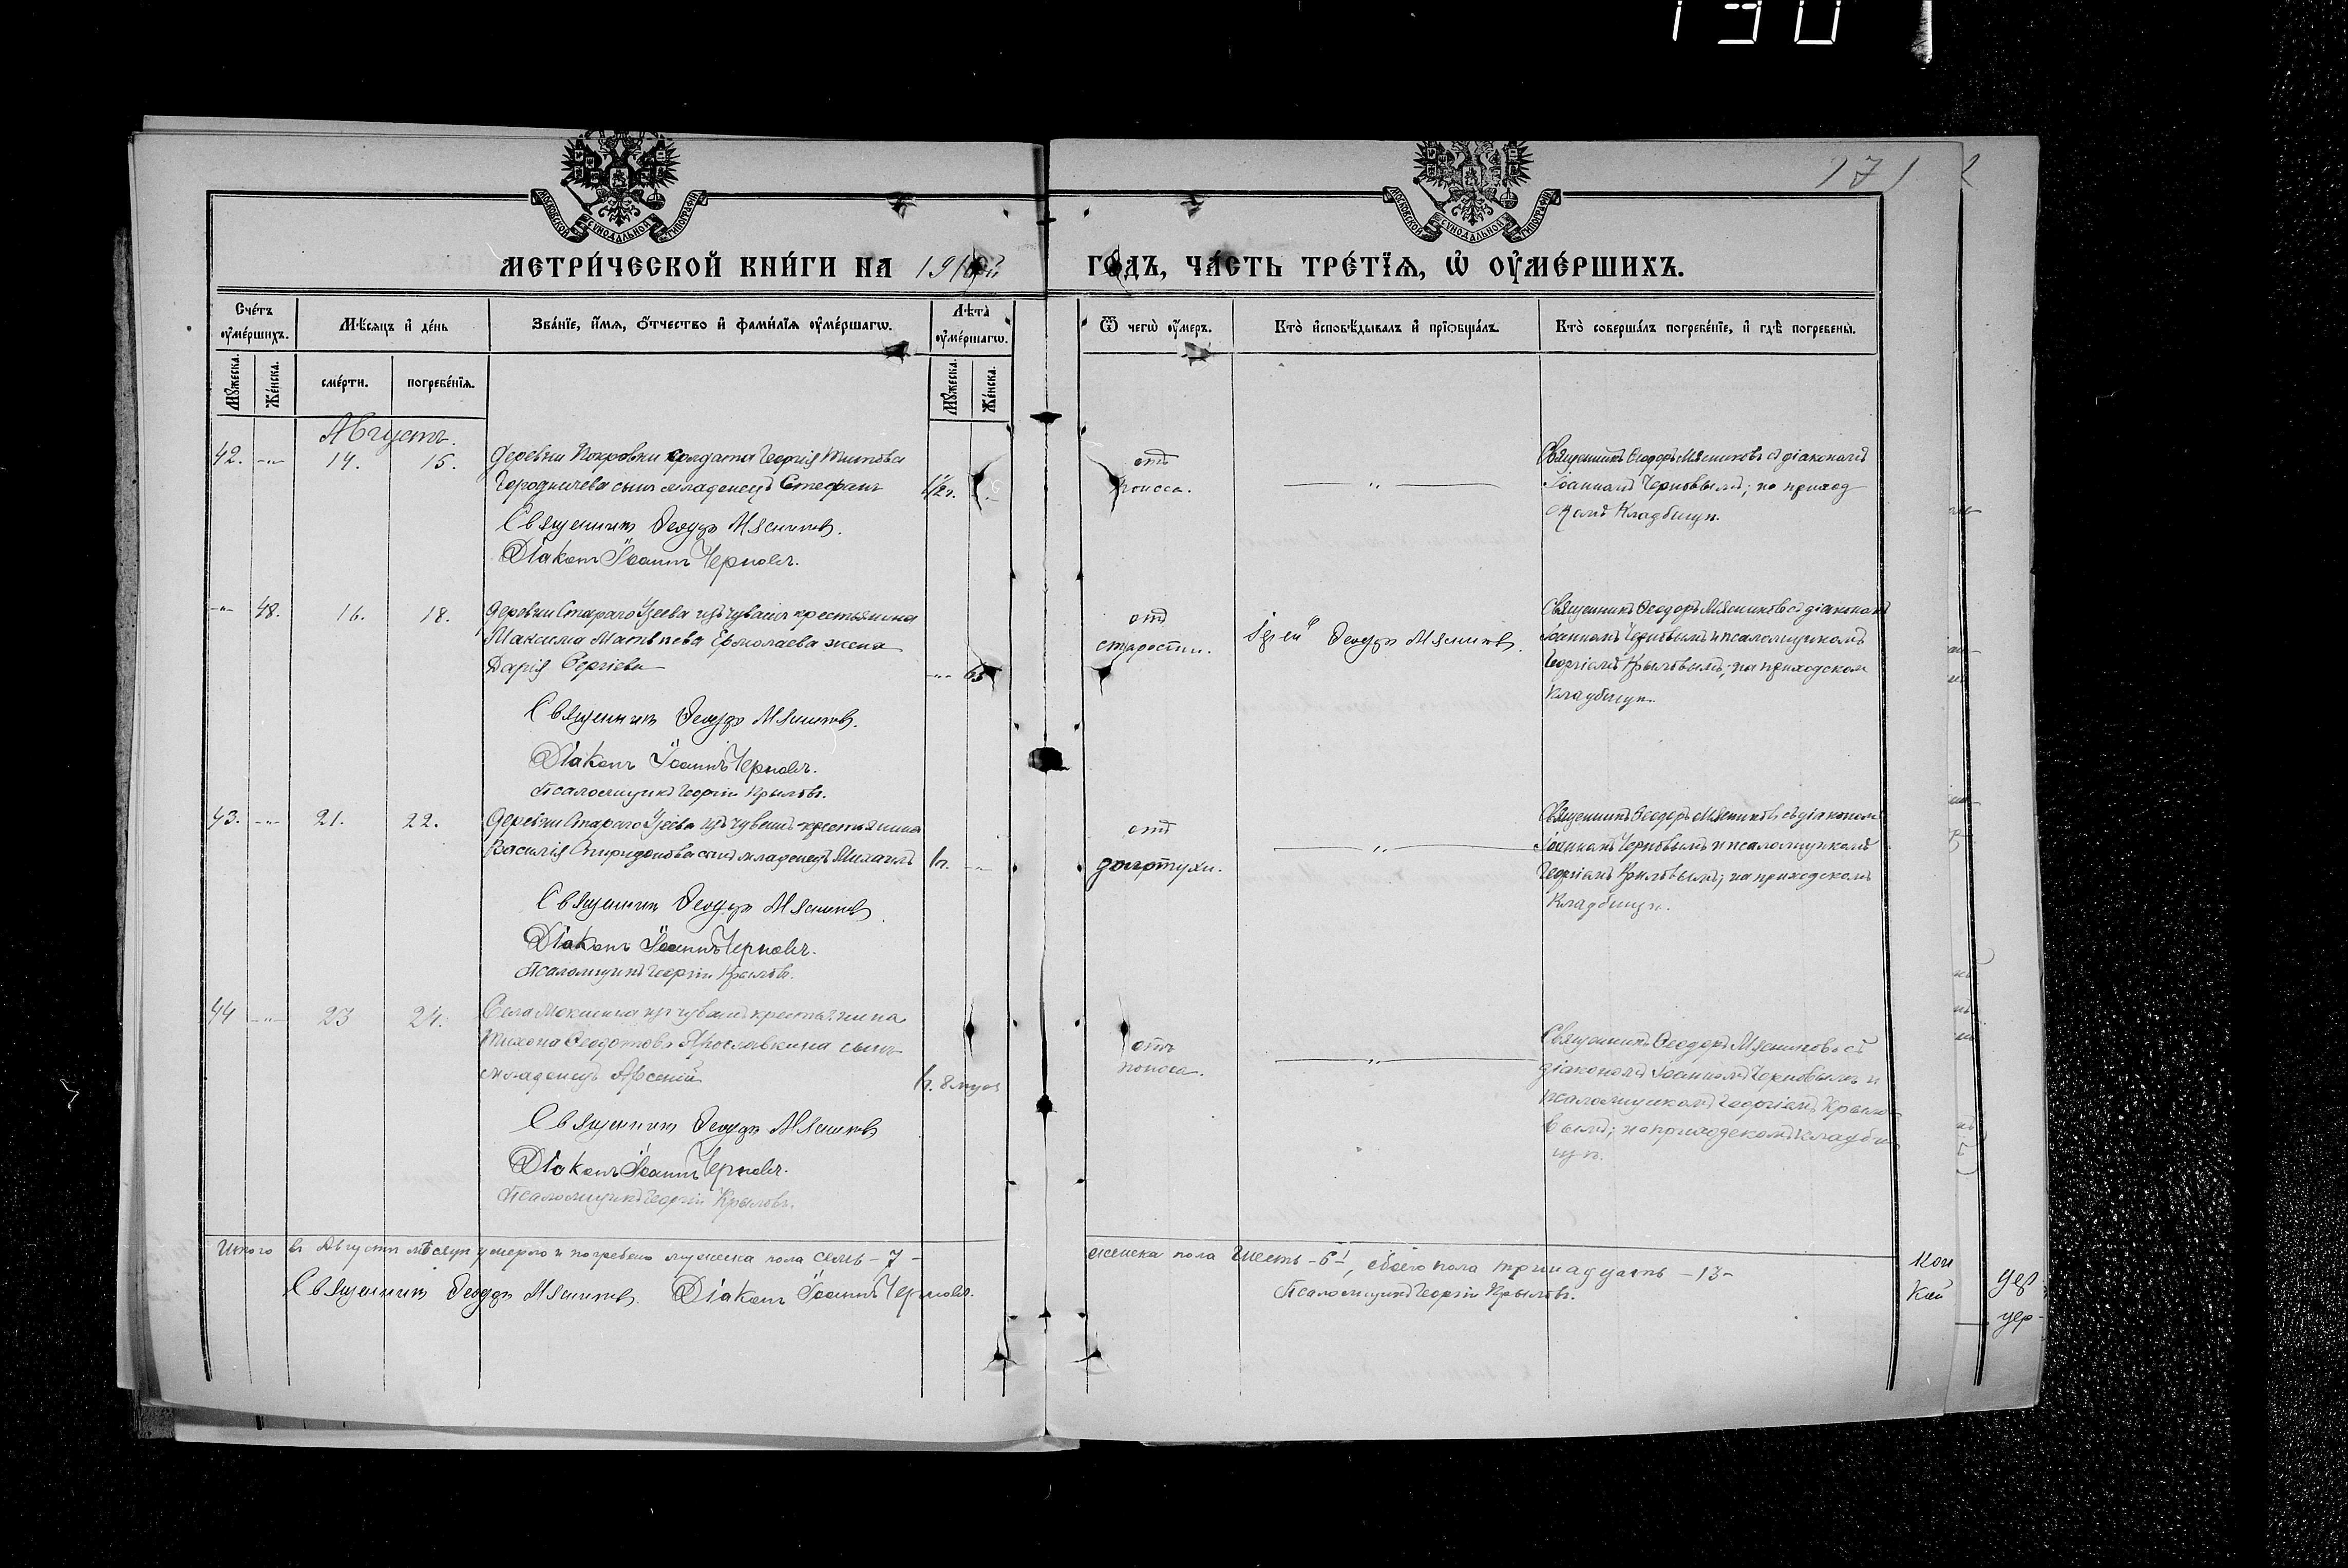 171
МОСКОВСКОЙ СѴНОДАЛЬНОЙ ТИПОГРАФІИ
МОСКОВСКОЙ СѴНОДАЛЬНОЙ ТИПОГРАФІИ
МЕТРИ́ЧЕСКОЙ КНИ́ГИ НА 191
ГО́ДЪ, ЧА́СТЬ ТРЕ́ТЇѦ, Ѡ҆ ОУ҆МЕ́РШИХЪ.
Сче́тъ оу҆ме́ршихъ.
Мѣ́сѧцъ и҆ де́нь
Зва́нїе, и҆́мѧ, ѻ҆́тчество и҆ фами́лїѧ оу҆ме́ршагѡ.
Лѣ̀та оу҆ме́ршагѡ.
Ѿ чегѡ̀ оу҆́меръ.
Кто̀ и҆сповѣ́дывалъ и҆ прїѡбща́лъ.
Кто̀ соверша́лъ погребе́нїе, и҆ гдѣ̀ погребены̀.
Мꙋ́жеска. Же́нска. сме́рти. погребе́нїѧ. Мꙋ́жеска. Же́нска.
Августъ.
42. -„- 14. 15. Деревни Покровки солдата Георгія Титова
Городничева сынъ младенецъ Стефанъ 1/2 г.
Священникъ Ѳеодоръ Мясниковъ.
Діаконъ Іоаннъ Черновъ.
отъ
поноса.
„
Священникъ Ѳеодоръ Мясниковъ съ діакономъ
Іоанномъ Черновымъ; на приход
скомъ кладбищѣ.
-„- 48. 16. 18. Деревни Стараго Узеева изъ чувашъ крестьянина
Максима Матвѣева Ермолаева жена
Дарія Сергіева -„- 65
Священникъ Ѳеодоръ Мясниковъ.
Діаконъ Іоаннъ Черновъ.
Псаломщикъ Георгій Крыловъ.
отъ
старости.
Ѳеодоръ Мясниковъ.
Священникъ Ѳеодоръ Мясниковъ съ діакономъ
Іоанномъ Черновымъ и псаломщикомъ
Георгіемъ Крыловымъ; на приходскомъ
кладбищѣ.
43. -„- 21. 22. Деревни Стараго Узеева изъ чувашъ крестьянина
Василія Спиридонова сынъ младенецъ Михаилъ 1 г. -„-
Священникъ Ѳеодоръ Мясниковъ.
Діаконъ Іоаннъ Черновъ.
Псаломщикъ Георгій Крыловъ.
отъ
„
Священникъ Ѳеодоръ Мясниковъ съ діакономъ
Іоанномъ Черновымъ и псаломщикомъ
Георгіемъ Крыловымъ; на приходскомъ
кладбищѣ.
44 -„- 23 24. Села Мокшина изъ чувашъ крестьянина
Тихона Ѳеодотова Ярославкина сынъ
младенецъ Арсеній
Священникъ Ѳеодоръ Мясниковъ
Діаконъ Іоаннъ Черновъ.
Псаломщикъ Георгій Крыловъ.
отъ
поноса.
„
Священникъ Ѳеодоръ Мясниковъ съ
діакономъ Іоанномъ Черновымъ и
псаломщикомъ Георгіемъ Крыло-
вымъ; на приходскомъ кладби
щѣ.
Итого въ Августѣ мѣсяцѣ умерло и погребено мужеска пола семь -7-
женска пола шесть -6-, обоего пола тринадцать -13-
Священникъ Ѳеодоръ Мясниковъ. Діаконъ Іоаннъ Черновъ.
Псаломщикъ Георгій Крыловъ.